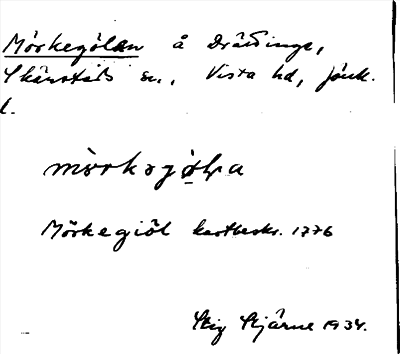 Mörkegölen å Drättinge,
Skärstads sn., Vista hd, Jönk.
l.
mörkəgöl̥a
Mörkegiöl kartbeskr. 1776
Stig Stjärne 1934.